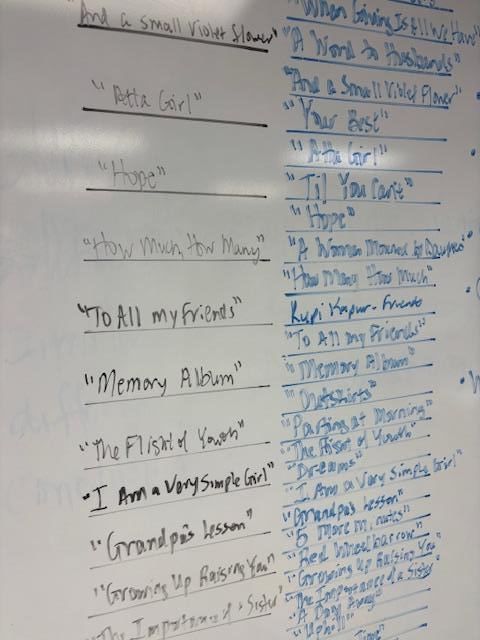 "And a small violet flower"
"Atta Girl"
"Hope"
"How Much, How Many"
"To All my Friends"
"Memory Album"
"The Flight of Youth"
"I Am a Very Simple Girl"
"Grandpa's Lesson"
"Growing Up Raising You"
"The Importance of a Sister"
"When Giving Is All We Have"
"A Word to Husbands"
"And a Small Violet Flower"
"Your Best"
"Atta Girl"
"Til You Can't"
"Hope"
"A Woman Mourned by Daughters"
"How Many How Much"
Rupi Kapur - Friends
"To All my Friends"
"Memory Album"
"Outskirts"
"Parting at Morning"
"The Flight of Youth"
"Dreams"
"I Am a Very Simple Girl"
"Grandpa's Lesson"
"5 More minutes"
"Red Wheelbarrow"
"Growing Up Raising You"
"The Importance of a Sister"
"A Day Away"
"Uphill"
Time"